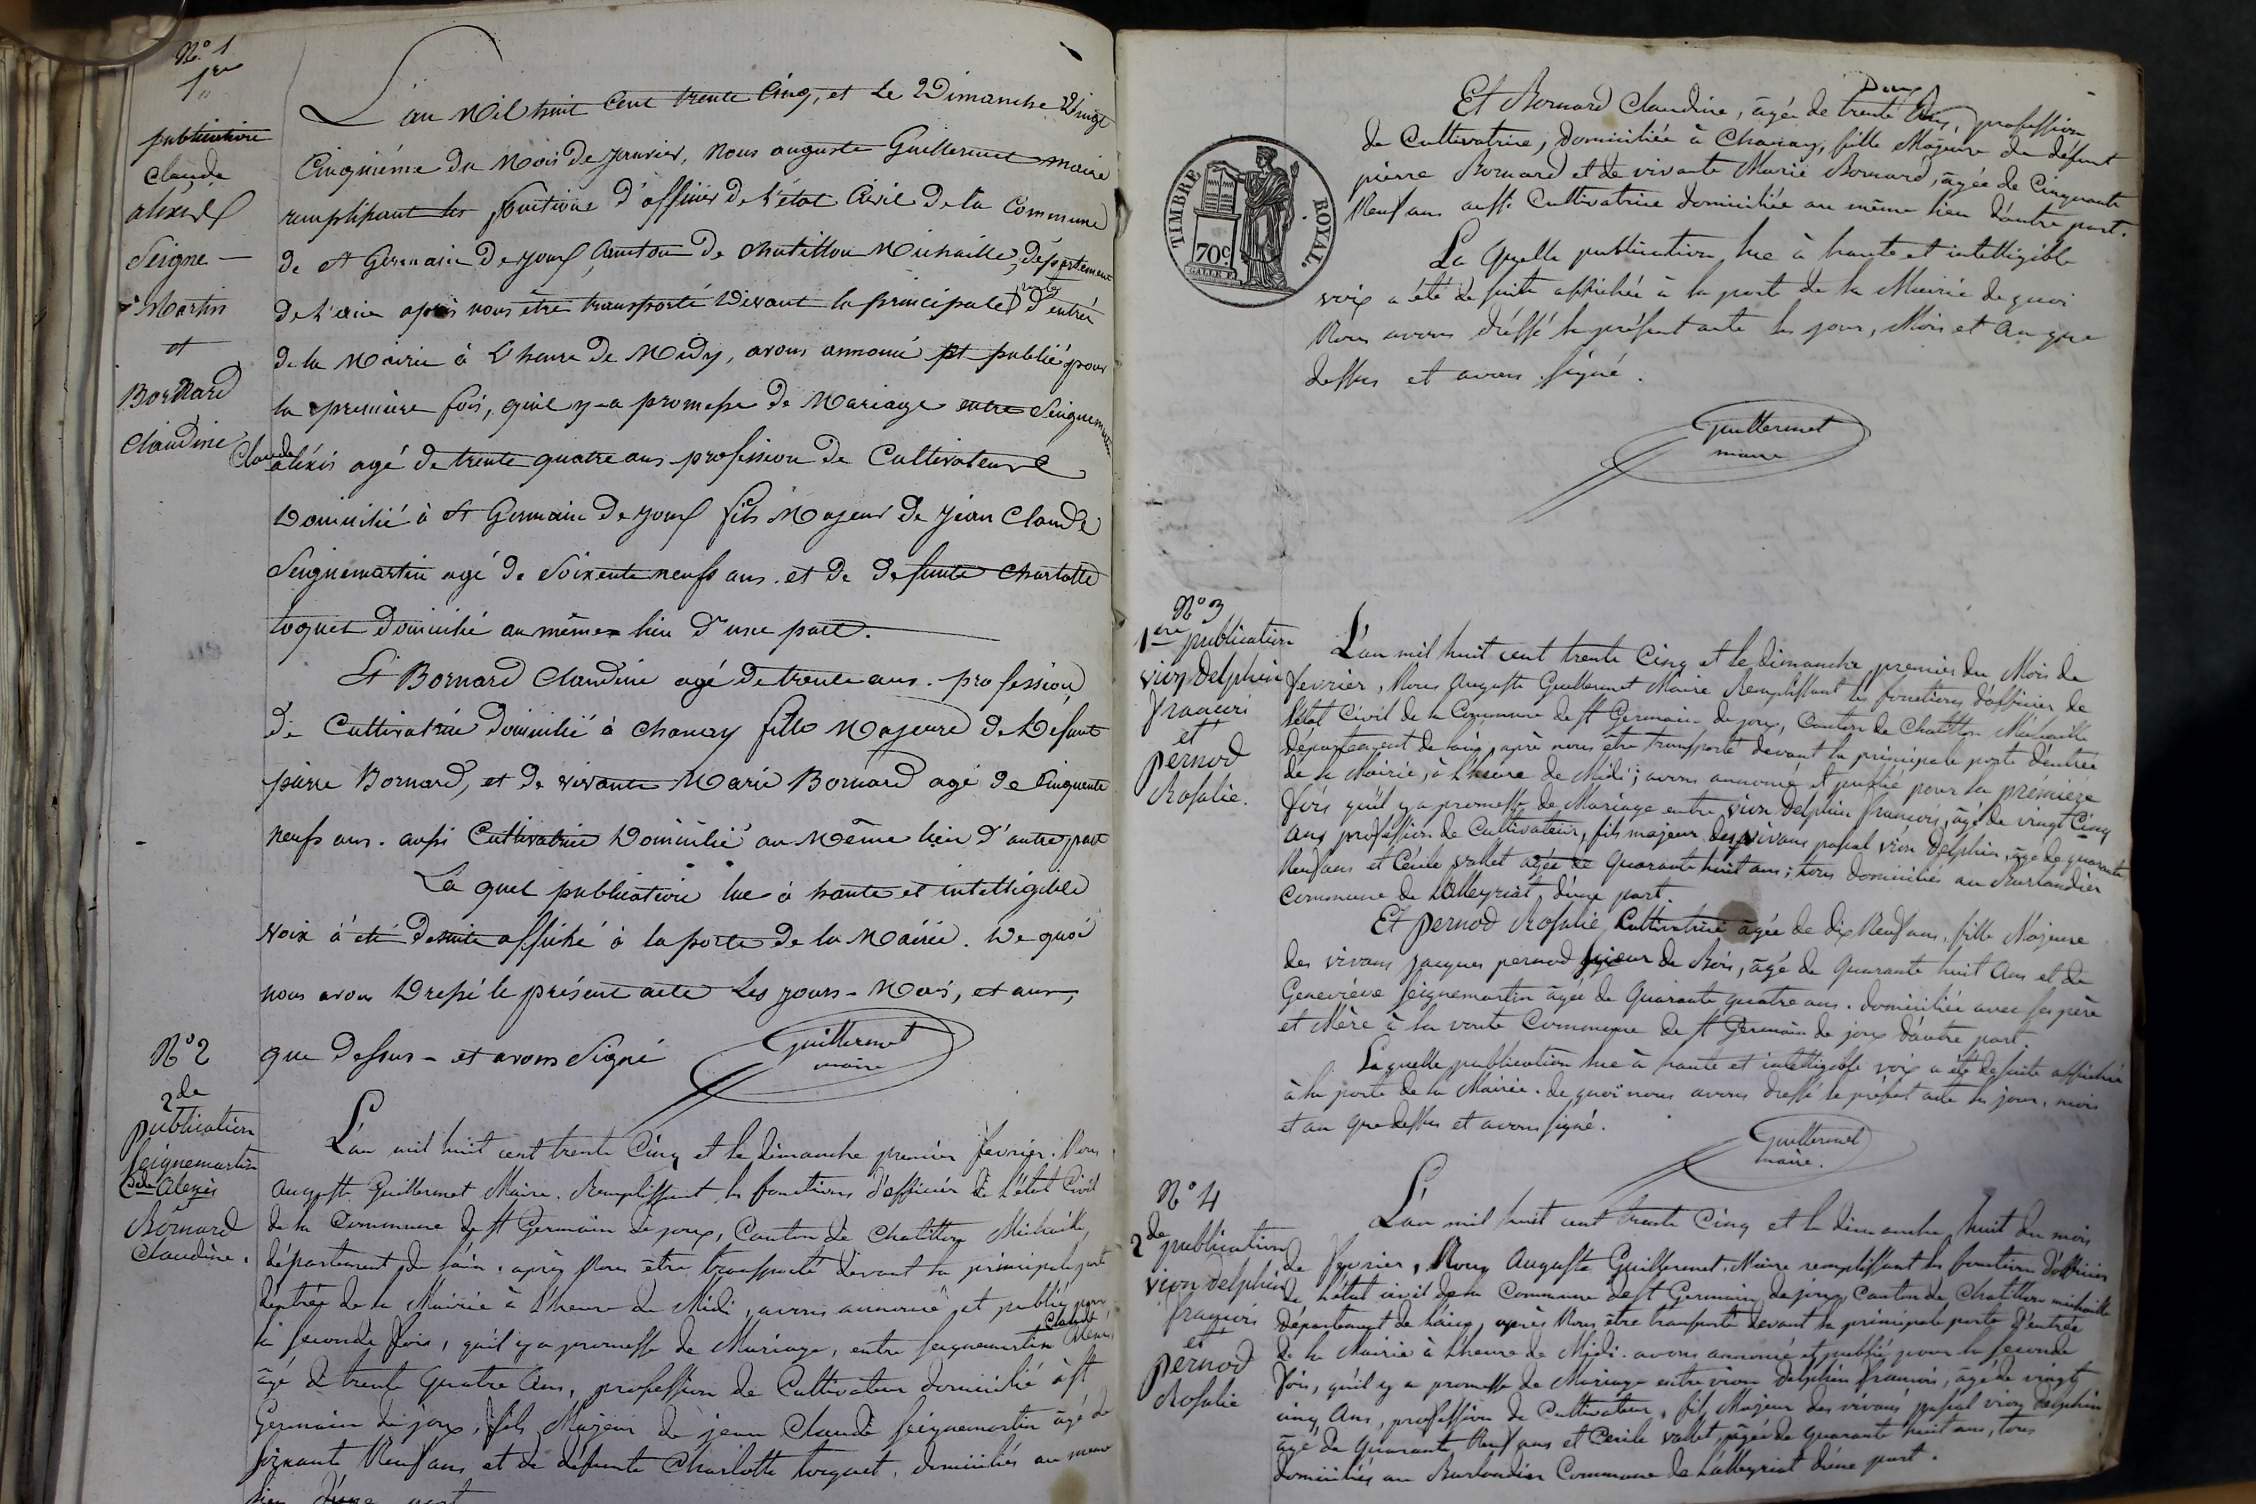 N° 1
1ere
publication
Claude
alexis
Seigne-
Martin
et
Bornard
Claudine
L'an Mil huit Cent trente Cinq, et Le Dimanche Vingt
Cinquième du Mois De Janvier, Nous auguste Guillermet maire
remplissant les fonctions d'officier De l'état Civil De la Commune
de St Germain De Joux, Canton De Chatillon Michaille, Département
De l'ain après nous être transporté Devant la principale porte D'entrée
De la Mairie à l'heure De Midy, avons annoncé et publié pour
la première fois, quil y-a promesse de Mariage entre Seignemartin
Claude alexis agé De trente quatre ans profession De Cultivateur
Domicilié à St Germain De Joux fils Majeur De Jean Claude
Seignemartin agé De Soixente neufs ans. et De Defunte Charlotte
toquet Domicilié au même lieu D'une part.
Et Bornard Claudine agé De trente ans. profession
De Cultivatrice Domicilié à Chanay fille Majeure De Défunt
pierre Bornard, et De vivante Marie Bornard agé De Cinquente
neufs ans. aussi Cultivatrice Domicilié au Même lieu D'autre part
La quel publication lue à haute et intelligible
Voix à été De suite affiché à la porte De la Mairie. De quoi
nous avons Dressé le présent acte Les jours - Mois, et ans,
que Dessus - et avons Signé
Guillermet
maire
N° 2
2de
publication
Seignemartin
Cde Alexis
et
Bornard
Claudine.
L'an mil huit cent trente Cinq et le dimanche premier fevrier. Nous
Auguste Guillermet Maire. Remplissant les fonctions d'officier de l'état Civil
de la Commune de St Germain de joux, Canton de Chatillon Michaille,
département de l'ain. après Nous être transporté devant la principale porte
d'entrée de la Mairie à l'heure de Midi, avons annoncé et publié pour
la seconde fois, qu'il y a promesse de Mariage, entre seignemartin Claude Alexis
âgé de trente quatre Ans, profession de Cultivateur domicilié à St
Germain de joux, fils Majeur de jean Claude seignemartin âgé de
soixante Neuf ans et de défunte Charlotte toquet, domiciliés au même
lieu d'une part
Et Bornard Claudine, âgée de trente Deux ans, profession
de Cultivatrice, domiciliée à Chanay, fille Majeure de défunt
pierre Bornard et de vivante Marie Bornard, âgée de Cinquante
Neuf ans aussi Cultivatrice domiciliée au même lieu d'autre part.
La quelle publication lue à haute et intelligible
voix a été de suite affichée à la porte de la Mairie de quoi
Nous avons dréssé le présent acte les jour, Mois et An que
dessus et avons signé.
Guillermet
maire
TIMBRE ROYAL.
70c.
N° 3
1ere publication
vion Delphin
francois
et
pernod
Rosalie.
L'an mil huit cent trente Cinq et le dimanche premier du Mois de
fevrier, Nous Auguste Guillermet Maire Remplissant les fonctions d'officier de
l'état Civil de la Commune de St Germain de joux, Canton de Chatillon Michaille
département de l'ain, après nous être transporté devant la principale porte d'entrée
de la Mairie, à l'heure de Midi; avons annoncé et publié pour la première
fois qu'il y a promesse de Mariage entre vion Delphin francois, âgé de vingt Cinq
Ans profession de Cultivateur, fils majeur des vivans pascal vion Delphin, âgé de quarante
Neuf ans et Cécile vallet agée de Quarante huit ans; tous domiciliés au Burlandier
Commune de Lalleyriat d'une part.
Et pernod Rosalie Cultivatrice âgée de dix Neuf ans, fille Majeure
des vivans jacques pernod scieur de Bois, âgé de Quarante huit Ans et de
Geneviève seignemartin âgée de Quarante quatre ans. domiciliée avec ses père
et Mère à la voute Commune de St Germain de joux d'autre part.
Laquelle publication lue à haute et intelligible voix a été de suite affichée
à la porte de la Mairie. de quoi nous avons dressé le présent acte les jour, mois
et an que dessus et avons signé.
Guillermet
maire.
N° 4
2de publication
vion Delphin
francois
et
pernod
Rosalie
L'an mil huit cent trente Cinq et le dimanche huit du mois
de fevrier, Nous Auguste Guillermet, Maire remplissant les fonctions d'officier
de l'état civil de la Commune de St Germain de joux Canton de Chatillon michaille
département de l'ain, après Nous être transporté devant la principale porte d'entrée
de la Mairie à l'heure de Midi. avons annoncé et publié pour la seconde
fois, qu'il y a promesse de Mariage entre vion Delphin francois, âgé de vingt
cinq Ans, profession de Cultivateur, fils Majeur des vivans pascal vion Delphin
âgé de quarante Neuf ans et Cecile vallet, âgée de quarante huit ans, tous
domiciliés au Burlandier Commune de Lalleyriat d'une part.